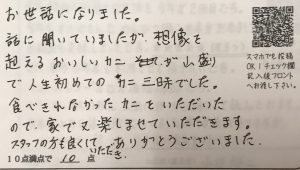 お世話になりました。
話に聞いていましたが、想像を
超えるおいしいカニが山盛り
で人生初めてのカニ三昧でした。
食べきれなかったカニをいただいた
ので、家で又楽しませていただきます。
スタッフの方も良くしていただき、ありがとうございました。
10点満点で 10 点
スマホでも投稿
OK!チェック欄
記入後フロント
へお渡し下さい。